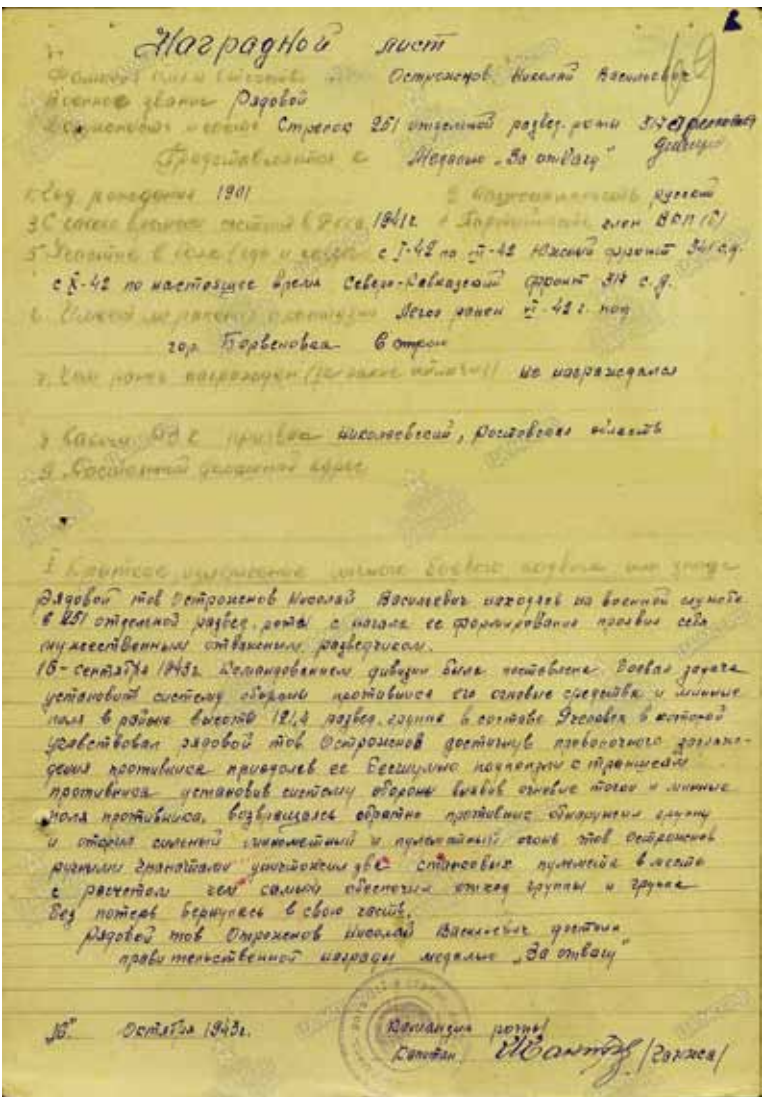 Наградной лист
69
Фамилия имя и отчество Остроженов Николай Васильевич
Военное звание Рядовой
Должность и часть Стрелок 251 отдельной развед. роты 317 стрелковой
дивизии
Представляется к Медалью „За отвагу"
1. Год рождения 1901 2 Национальность русский
3 С какого времени состоит в 1941 г. 4 Партийность член ВКП(б)
5 Участие в боях (где и когда) с I-42 по 42 Южный фронт 341 с.д.
с X-42 по настоящее время Северо-Кавказский фронт 317 с.д.
6. ранения и контузии Легко ранен 42 г. под
гор. Барвенковая В строю
7. Чем ранее награжден (за какие отличия) не награждался
8 Каким РВК призван Николаевский, Ростовская область
9 Постоянный домашний адрес
I Краткое изложение личного боевого подвига или заслуг
Рядовой тов Остроженов Николай Васильевич находясь на военной службе
в 251 отдельной развед. роты с начала ее формирования проявил себя
мужественным отважным разведчиком.
16 - сентября 1943 г. Командованием дивизии была поставлена боевая задача
установить систему обороны противника его огневые средства и минные
поля в районе высоты 121,4 развед. группа в составе 9 человек в которой
участвовал рядовой тов Остроженов достигнув проволочного заграж-
дения противника приодолев ее бесшумно подползли к траншеям
противника установив систему обороны выявив огневые точки и минные
поля противника, возвращаясь обратно противник обнаружил группу
и открыл сильный и пулеметный огонь тов Остроженов
ручными гранатами уничтожил два станковых пулемета вместе
с расчетом чем самым обеспечил отход группы и группа
без потерь вернулась в свою часть.
Рядовой тов Остроженов Николай Васильевич достоин
правительственной награды медалью „За отвагу"
„16" Октября 1943 г. Командир роты
Капитан